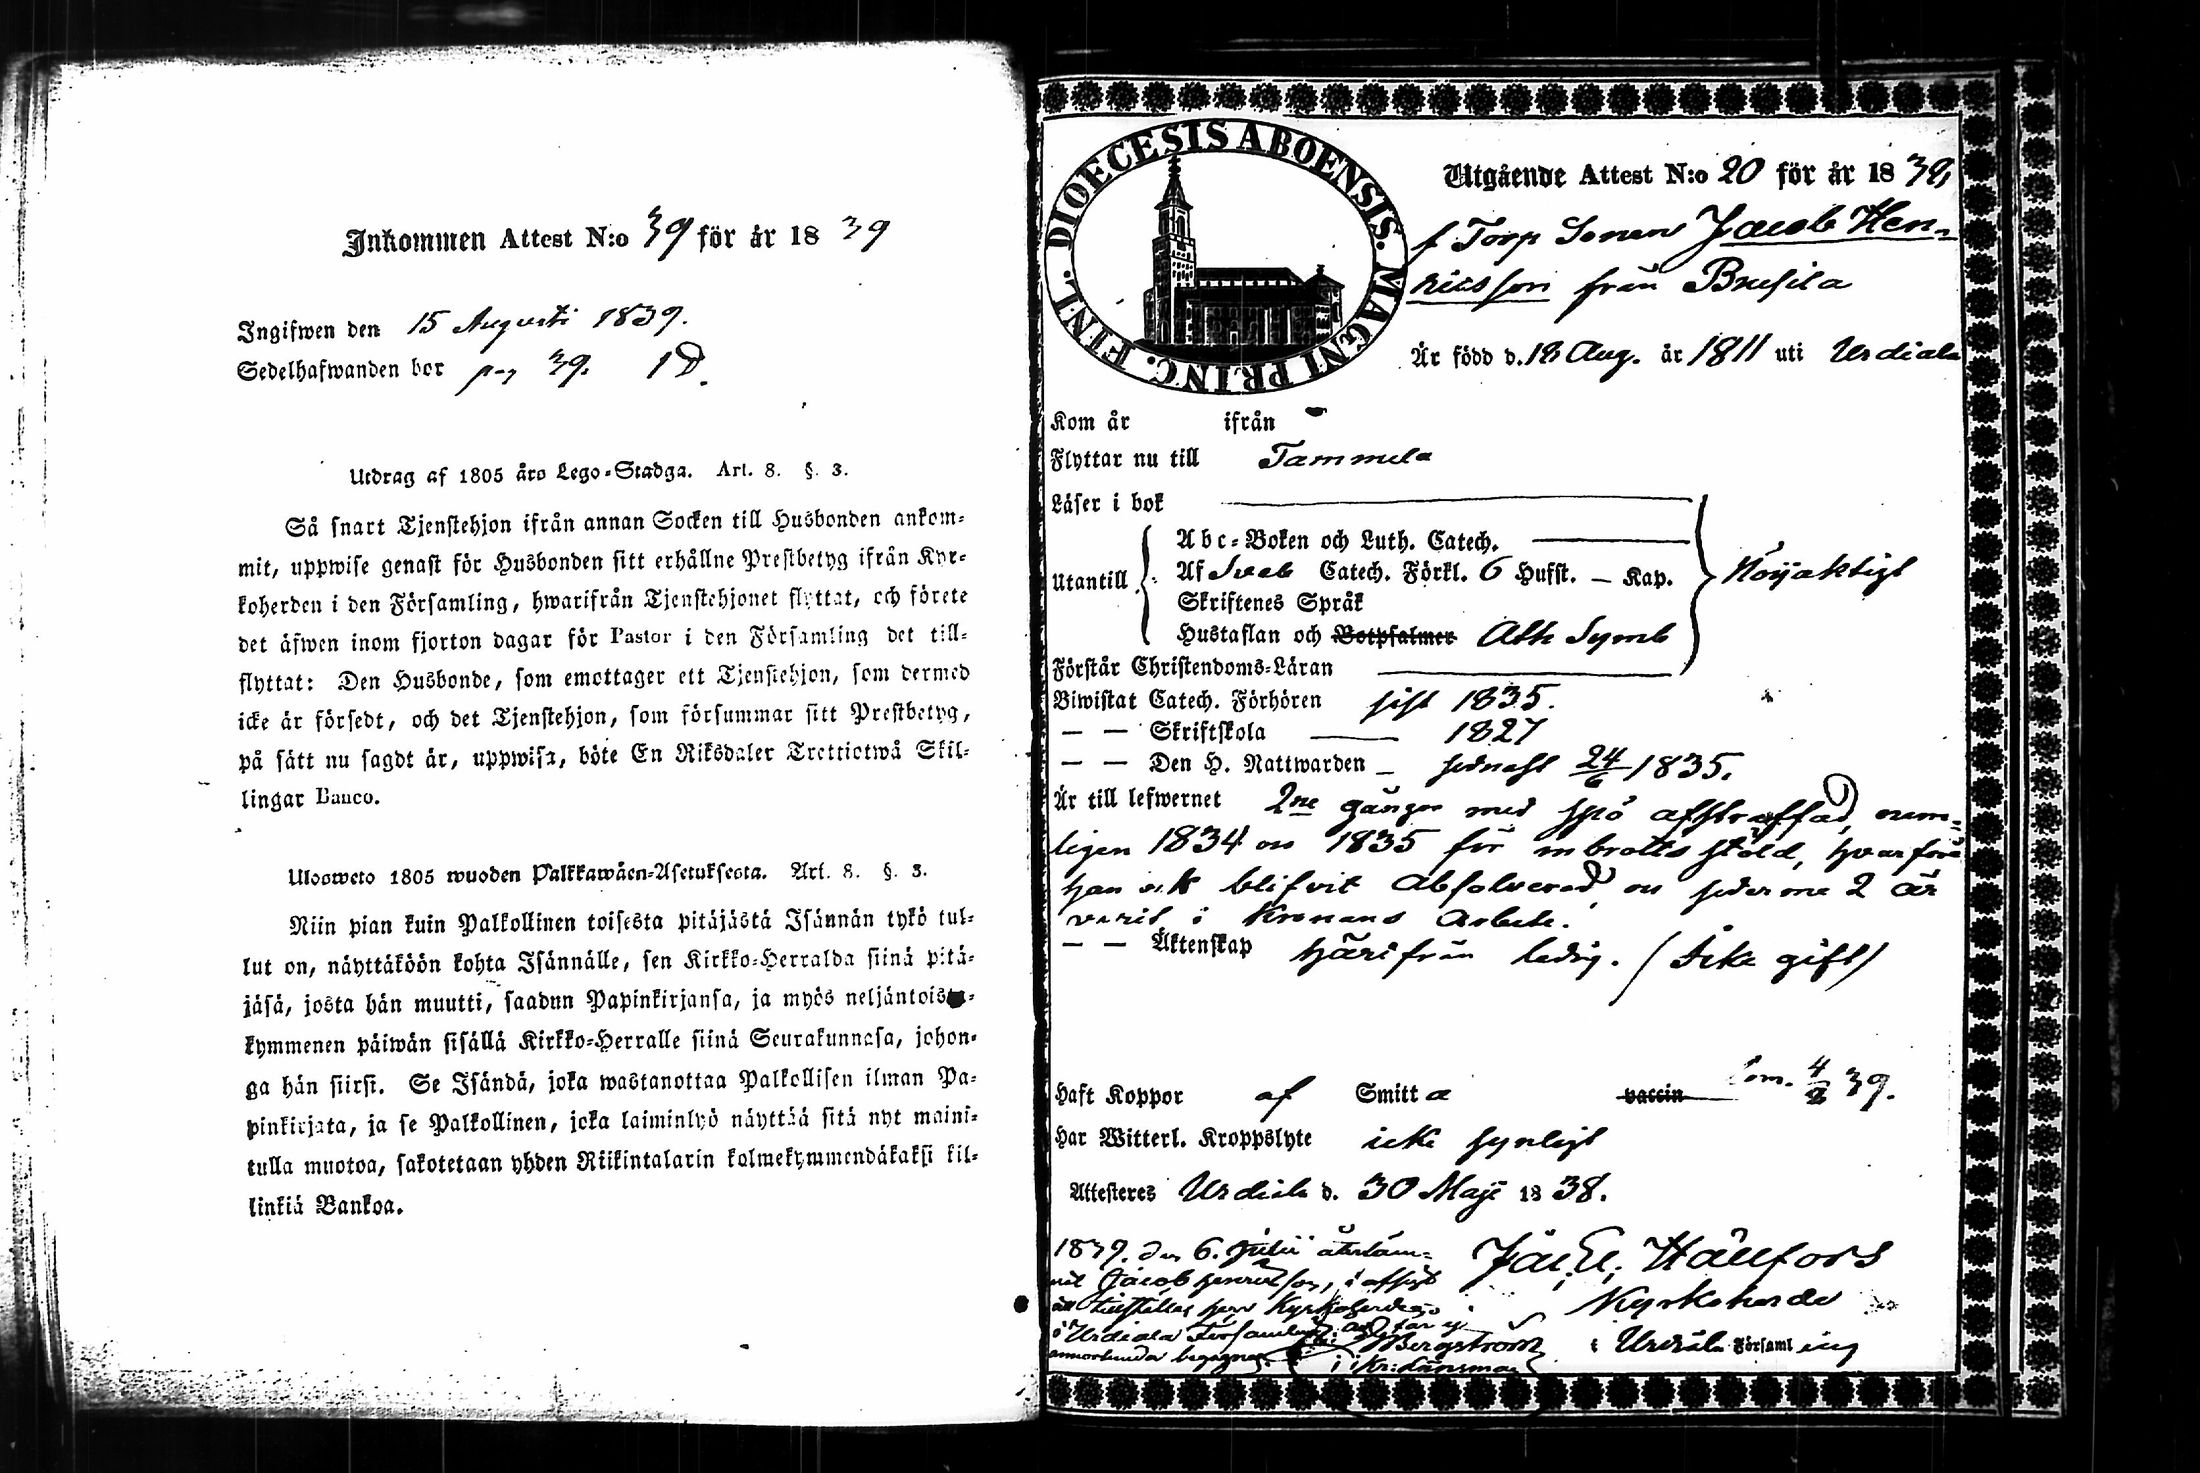 Inkommen Attest N:o 39 för år 18 39
Ingifwen den 15 Augusti 1839.
Sedelhafwanden bor pag 39.
Utdrag af 1805 års Lego-Stadga. Art. 8. §. 3.
Så snart Tjenstehjon ifrån annan Socken till Husbonden ankom-
mit, uppwise genast för Husbonden sitt erhållne Prestbetyg ifrån Kyr-
koherden i den Församling, hwarifrån Tjenstehjonet flyttat, och förete
det äfwen inom fjorton dagar för Pastor i den Församling det till-
flyttat: Den Husbonde, som emottager ett Tjenstehjon, som dermed
icke är försedt, och det Tjenstehjon, som försummar sitt Prestbetyg,
på sätt nu sagdt är, uppwisa, böte En Riksdaler Trettiotwå Skil-
lingar Banco.
Ulosweto 1805 wuoden Palkkawäen-Asetuksesta. Art. 8. §. 3.
Niin pian kuin Palkollinen toisesta pitäjästä Isännän tykö tul-
lut on, näyttäköön kohta Isännälle, sen Kirkko-Herralda siinä pitä-
jäsä, josta hän muutti, saadun Papinkirjansa, ja myös neljäntoista-
kymmenen päiwän sisällä Kirkko-Herralle siinä Seurakunnasa, johon-
ga hän siirsi. Se Isändä, joka wastanottaa Palkollisen ilman Pa-
pinkirjata, ja se Palkollinen, joka laiminlyö näyttää sitä nyt maini-
tulla muotoa, sakotetaan yhden Riikintalarin kolmekymmendäkaksi kil-
linkiä Bankoa.
DIOECESIS ABOENSIS. MAGNI PRINC. FINL.
Utgående Attest N:o 20 för år 18 39,
f Torp Sonen Jacob Hen-
ricsson från Brusila
Är född d. 18 Aug. år 1811 uti Urdiala
Kom år ifrån
Flyttar nu till Tammela
Läser i bok
Utantill
Abc-Boken och Luth. Catech.
Af Sveb Catech. Förkl. 6 Hufst. – Kap.
Nöijaktigt
Skriftenes Språk
Hustaflan och Botpsalmer Ath Symb
Förstår Christendoms-Läran
Biwistat Catech. Förhören sist 1835.
— — Skriftskola 1827
— — Den H. Nattwarden – sednast 24/6 1835.
Är till lefwernet 2ne gånger med spö afstraffad, nem-
ligen 1834 oc 1835 för inbrotts stöld, hvarföre
han ock blifvit absolverad, oc sederme 2 år
varit i Kronans arbete.
— — Äktenskap härifrån ledig. (Icke gift)
Haft Koppor af Smitta vaccin Com. 4/2 39.
Har Witterl. Kroppslyte icke synligt
Attesteres Urdiala d. 30 Maji 18 38.
1839. den 6. Julii återläm-
nat Jacob Henricsson, i afsigt
att tillställas herr Kyrkoherden
i Urdiala Församling
Bergström
Kr: Länsman
Hällfors
Kyrkoherde
i Urdiala Församl ing